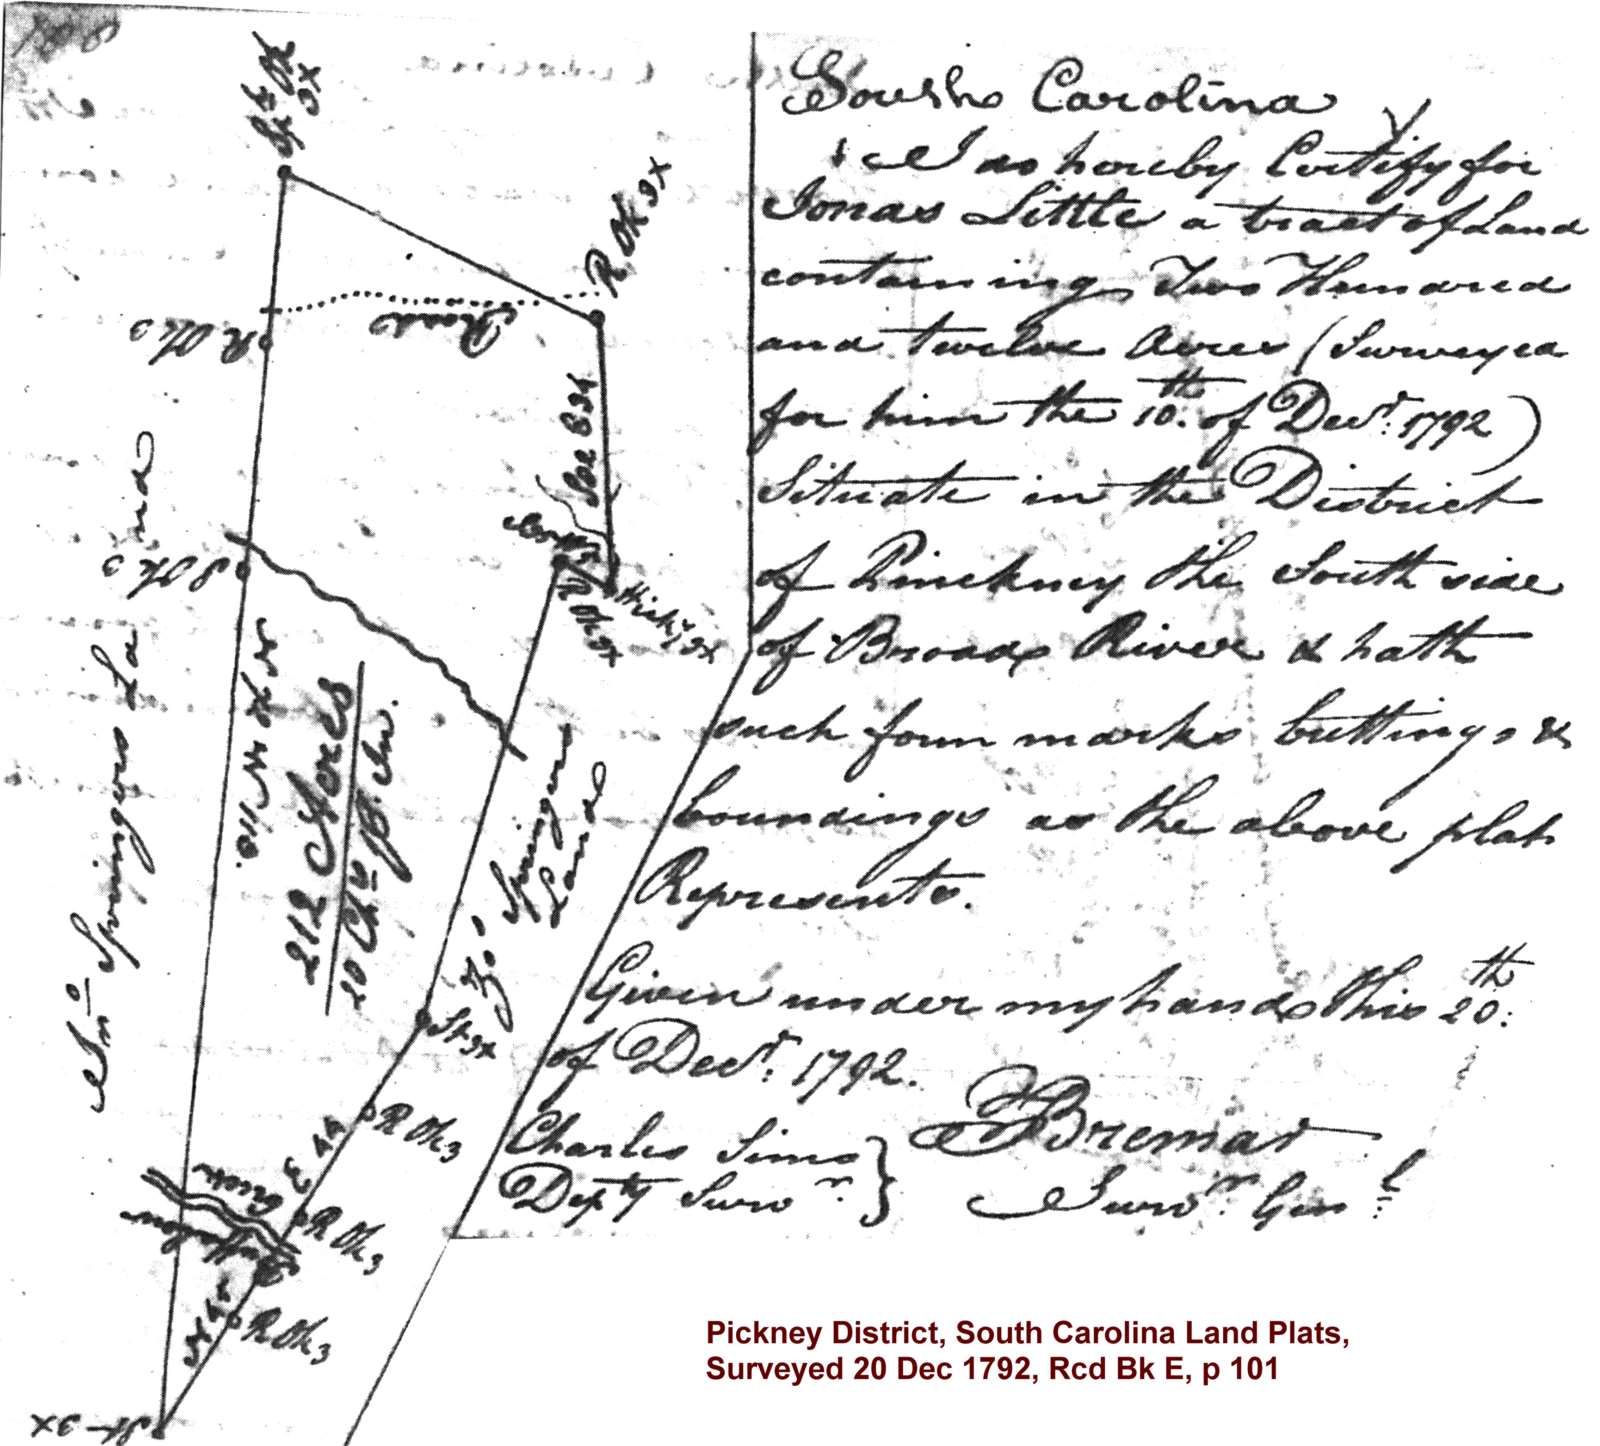 South Carolina
I do hereby Certify for
Jonas Little a tract of Land
containing Two Hundred
and twelve Acres (Surveyed
for him the 10th. of Decr. 1792)
Situate in the District
of Pinckney the South side
of Broad River & hath
such form marks buttings &
boundings as the above plat
Represents.
Given under my hand this 20th:
of Decr. 1792.
Charles Sims
Depty Survr.
F Bremar
Survr. Genl
R Ok 3x
Road
R Ok 3
S Ok 3
Hicky 3x
R Ok 3x
Jno Springers Land
212 Acres
20 Chn pr. In.
Springers
Land
St 3x
R Ok 3
Creek
R Ok 3
R Ok 3
St 3x
Pickney District, South Carolina Land Plats,
Surveyed 20 Dec 1792, Rcd Bk E, p 101